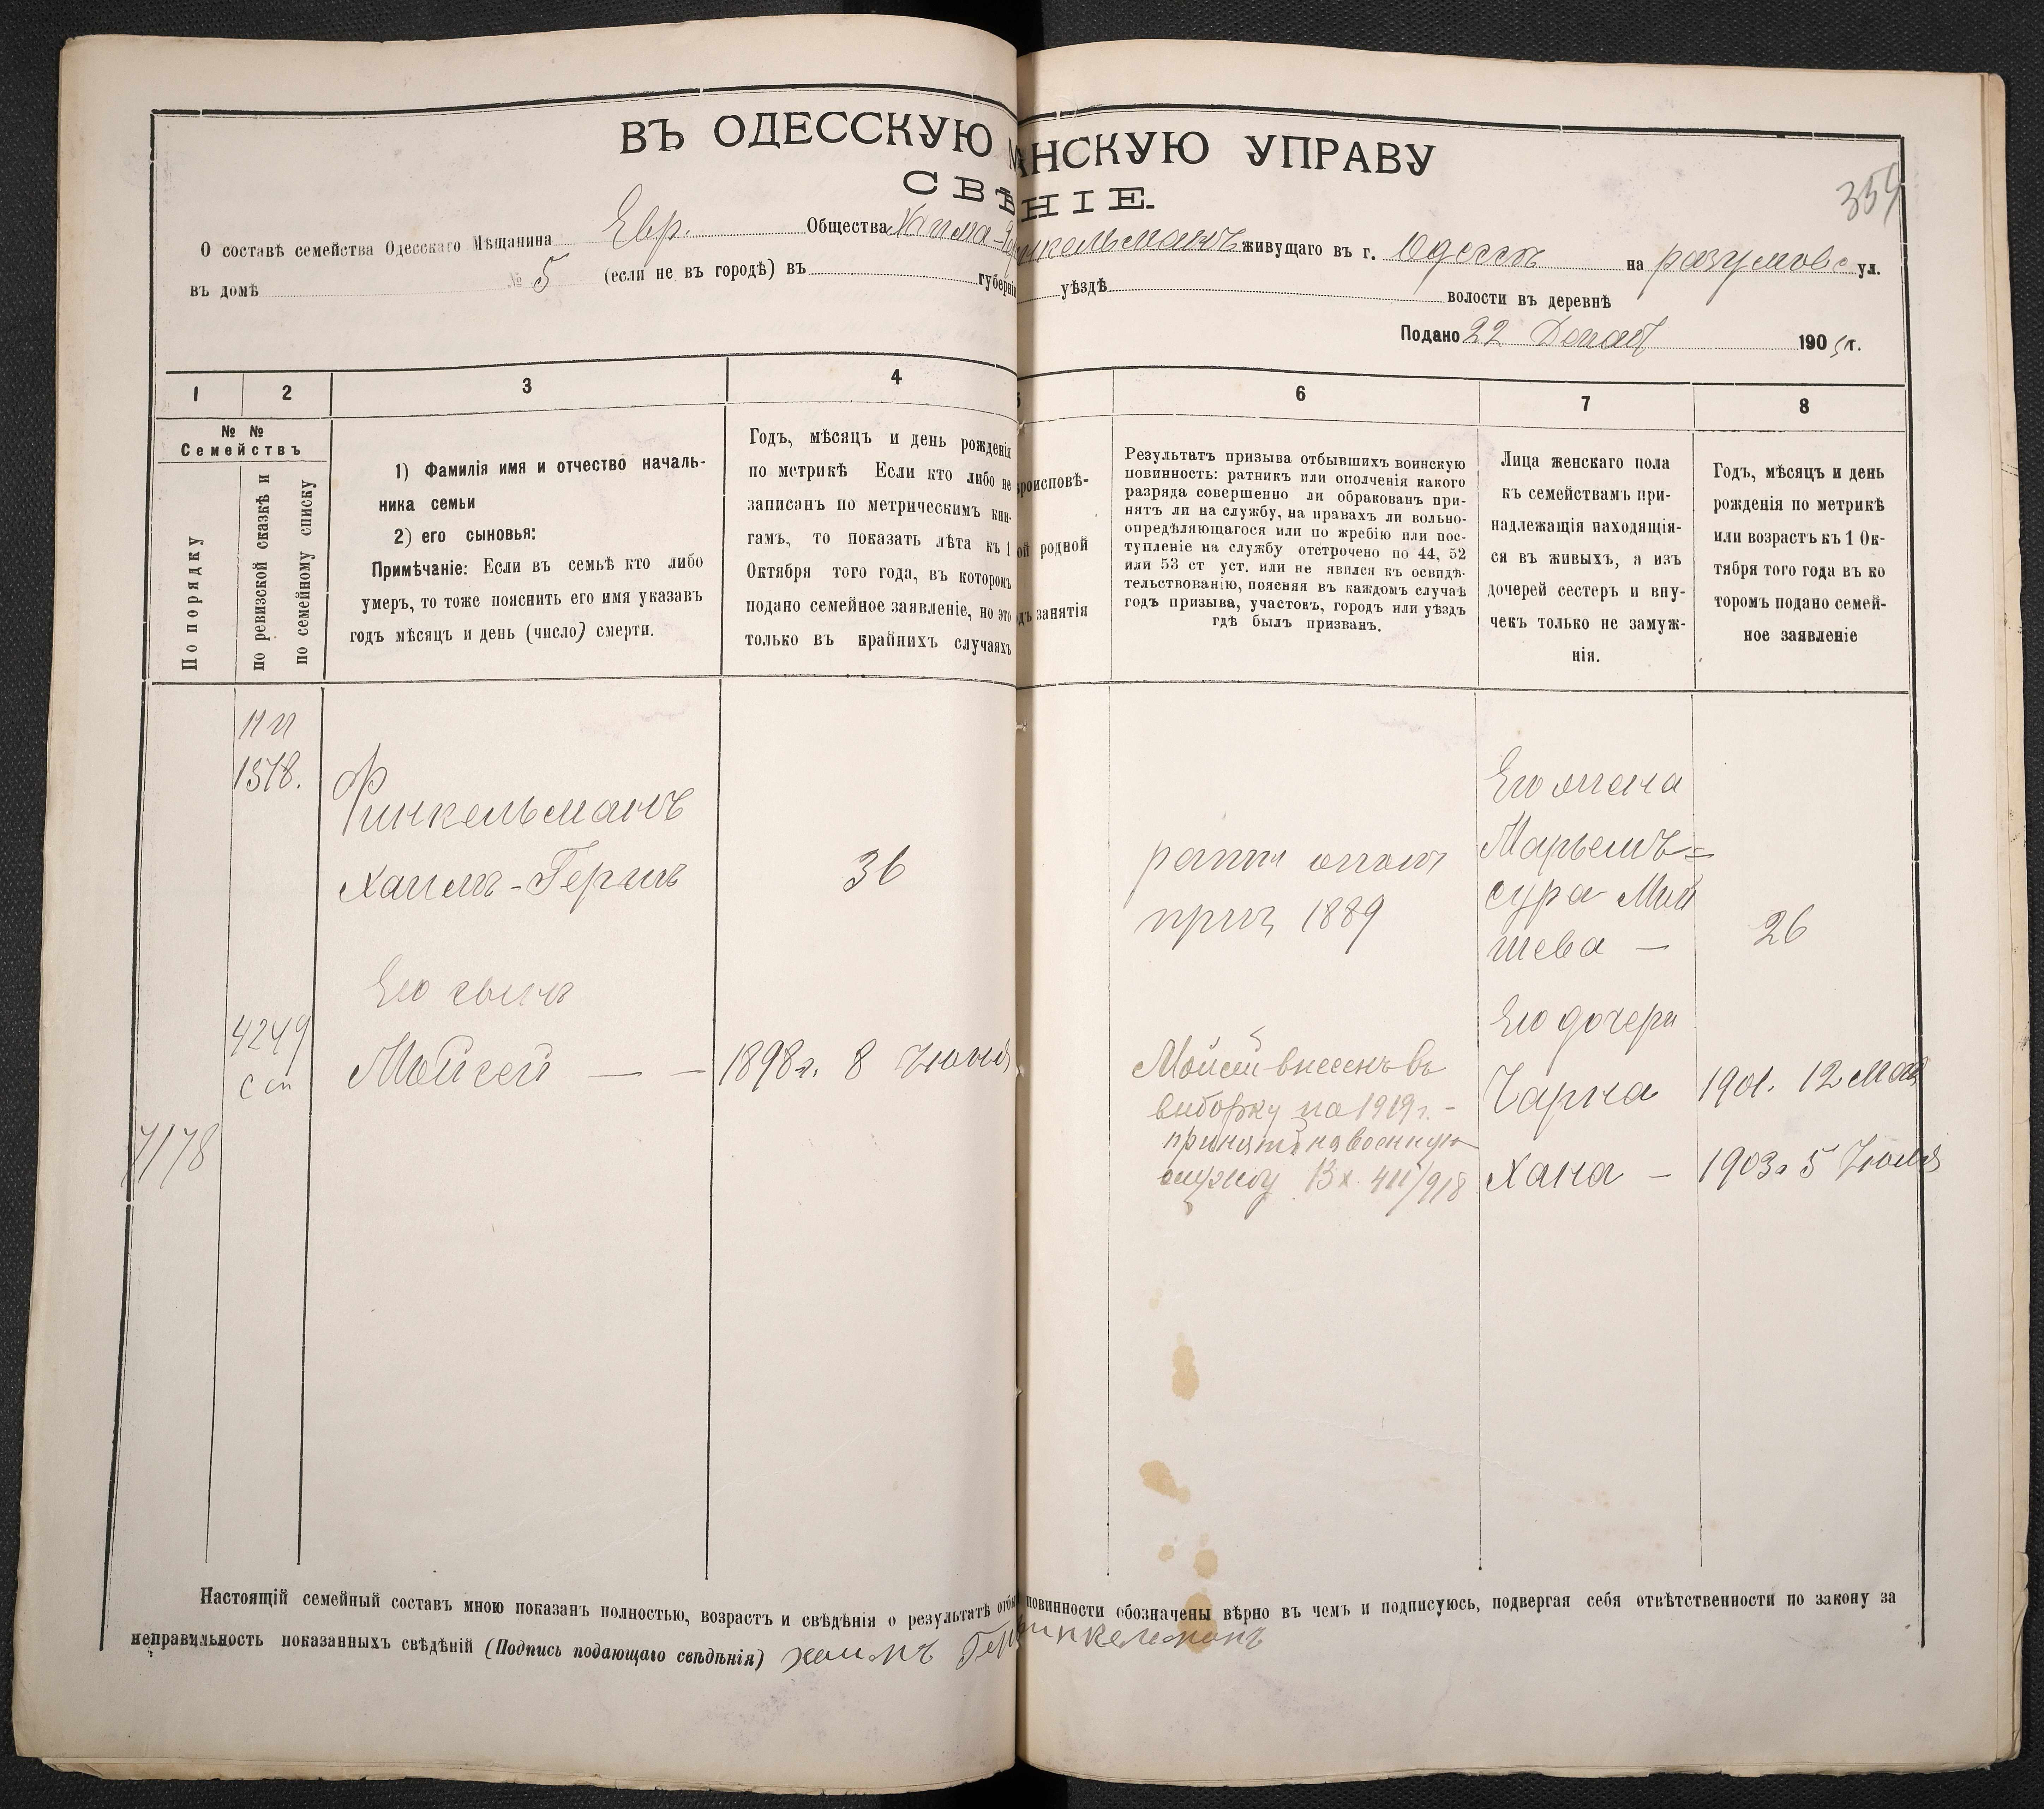 ВЪ ОДЕССКУЮ М АНСКУЮ УПРАВУ
СВѢ НІЕ.
359
О составѣ семейства Одесскаго Мѣщанина Евр. Общества Хаима-Ге инкельманъ живущаго въ г. Одессѣ на разумовс ул.
въ домѣ № 5 (если не въ городѣ) въ губерніи уѣздѣ волости въ деревнѣ
Подано 22 Декаб 1905 г.
1 2 3 4 5 6 7 8
№ №
Семействъ
По порядку
по ревизской сказкѣ и
по семейному списку
1) Фамилія имя и отчество началь-
ника семьи
2) его сыновья:
Примѣчаніе: Если въ семьѣ кто либо
умеръ, то тоже пояснить его имя указавъ
годъ мѣсяцъ и день (число) смерти.
Годъ, мѣсяцъ и день рожденія
по метрикѣ Если кто либо не
записанъ по метрическимъ кни-
гамъ, то показать лѣта къ 1
Октября того года, въ которомъ
подано семейное заявленіе, но это
только въ крайнихъ случаяхъ
роисповѣ-
ой родной
дъ занятія
Результатъ призыва отбывшихъ воинскую
повинность: ратникъ или ополченія какого
разряда совершенно ли обракованъ при-
нятъ ли на службу, на правахъ ли вольно-
опредѣляющагося или по жребію или пос-
тупленіе на службу отстрочено по 44, 52
или 53 ст уст. или не явился къ освидѣ-
тельствованію, поясняя въ каждомъ случаѣ
годъ призыва, участокъ, городъ или уѣздъ
гдѣ былъ призванъ.
Лица женскаго пола
къ семействамъ при-
надлежащія находящія-
ся въ живыхъ, а изъ
дочерей сестеръ и вну-
чекъ только не замуж-
нія.
Годъ, мѣсяцъ и день
рожденія по метрикѣ
или возрастъ къ 1 Ок-
тября того года въ ко
торомъ подано семей-
ное заявленіе
1518.
Финкельманъ
Хаимъ-Гершъ
36
ратн ополч
приз 1889
Его жена
Марьемъ=
сура Мой
шева —
26
Его сынъ
4249
сп
Мойсей — —
1898г. 8 Іюня
Мойсей внесенъ въ
выборку на 1919 г. -
принятъ на военную
службу Вх. 411/918
Его дочери
Чарна
1901. 12 мая
Хана —
1903г 5 Іюля
7178
Настоящій семейный составъ мною показанъ полностью, возрастъ и свѣдѣнія о результатѣ отбы повинности обозначены вѣрно въ чемъ и подписуюсь, подвергая себя отвѣтственности по закону за
неправильность показанныхъ свѣдѣній (Подпись подающаго свѣдѣнія) хаимъ Гер инкельманъ